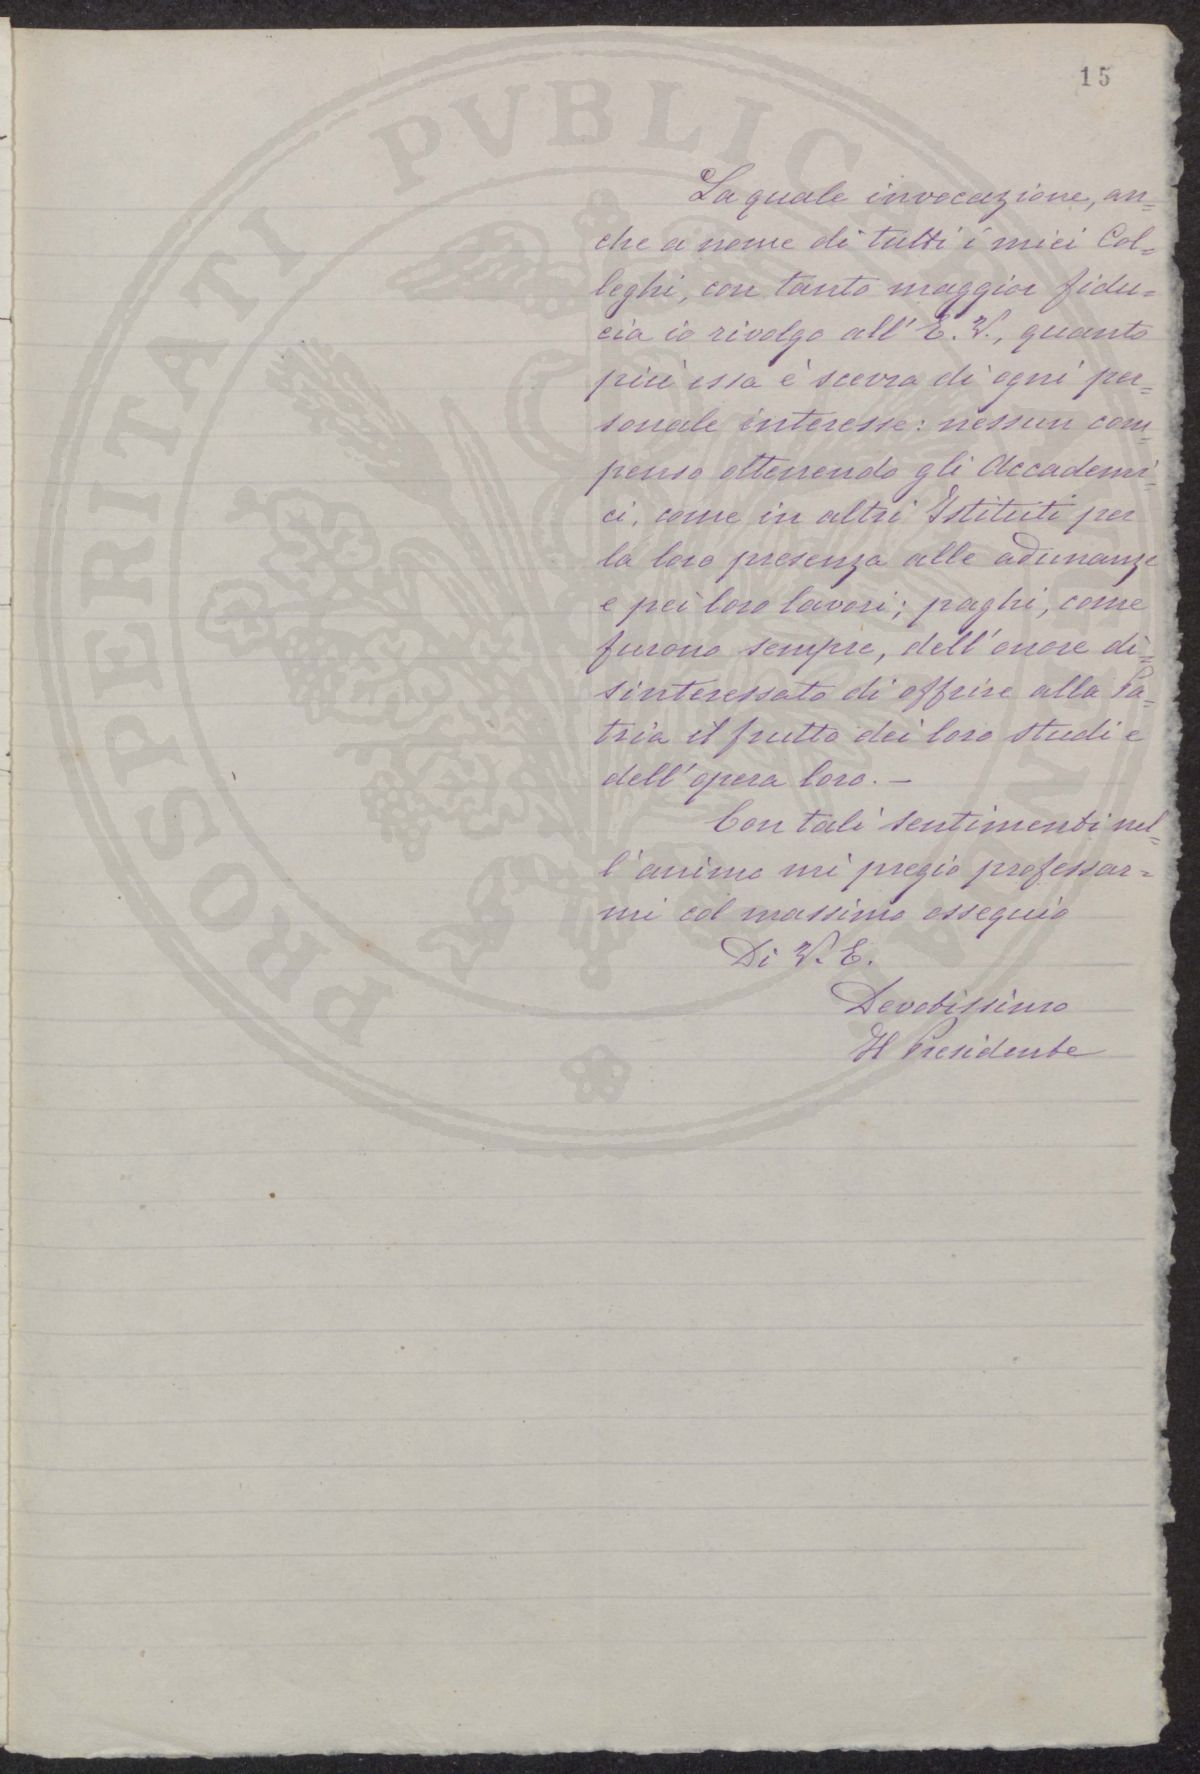 15
La quale invocazione, an=
che a nome di tutti i miei Col=
leghi, con tanto maggior fidu=
cia io rivolgo all'E. V., quanto
più essa è scevra di ogni per=
sonale interesse: nessun com=
penso ottenendo gli Accademi=
ci, come in altri Istituti per
la loro presenza alle adunanze
e pei loro lavori; paghi, come
furono sempre, dell'onore di=
sinteressato di offrire alla Pa=
tria il frutto dei loro studi e
dell'opera loro. —
Con tali sentimenti nel=
l'animo mi pregio professar=
mi col massimo ossequio
Di V. E.
Devotissimo
Il Presidente
PROSPERITATI PVBLICAE